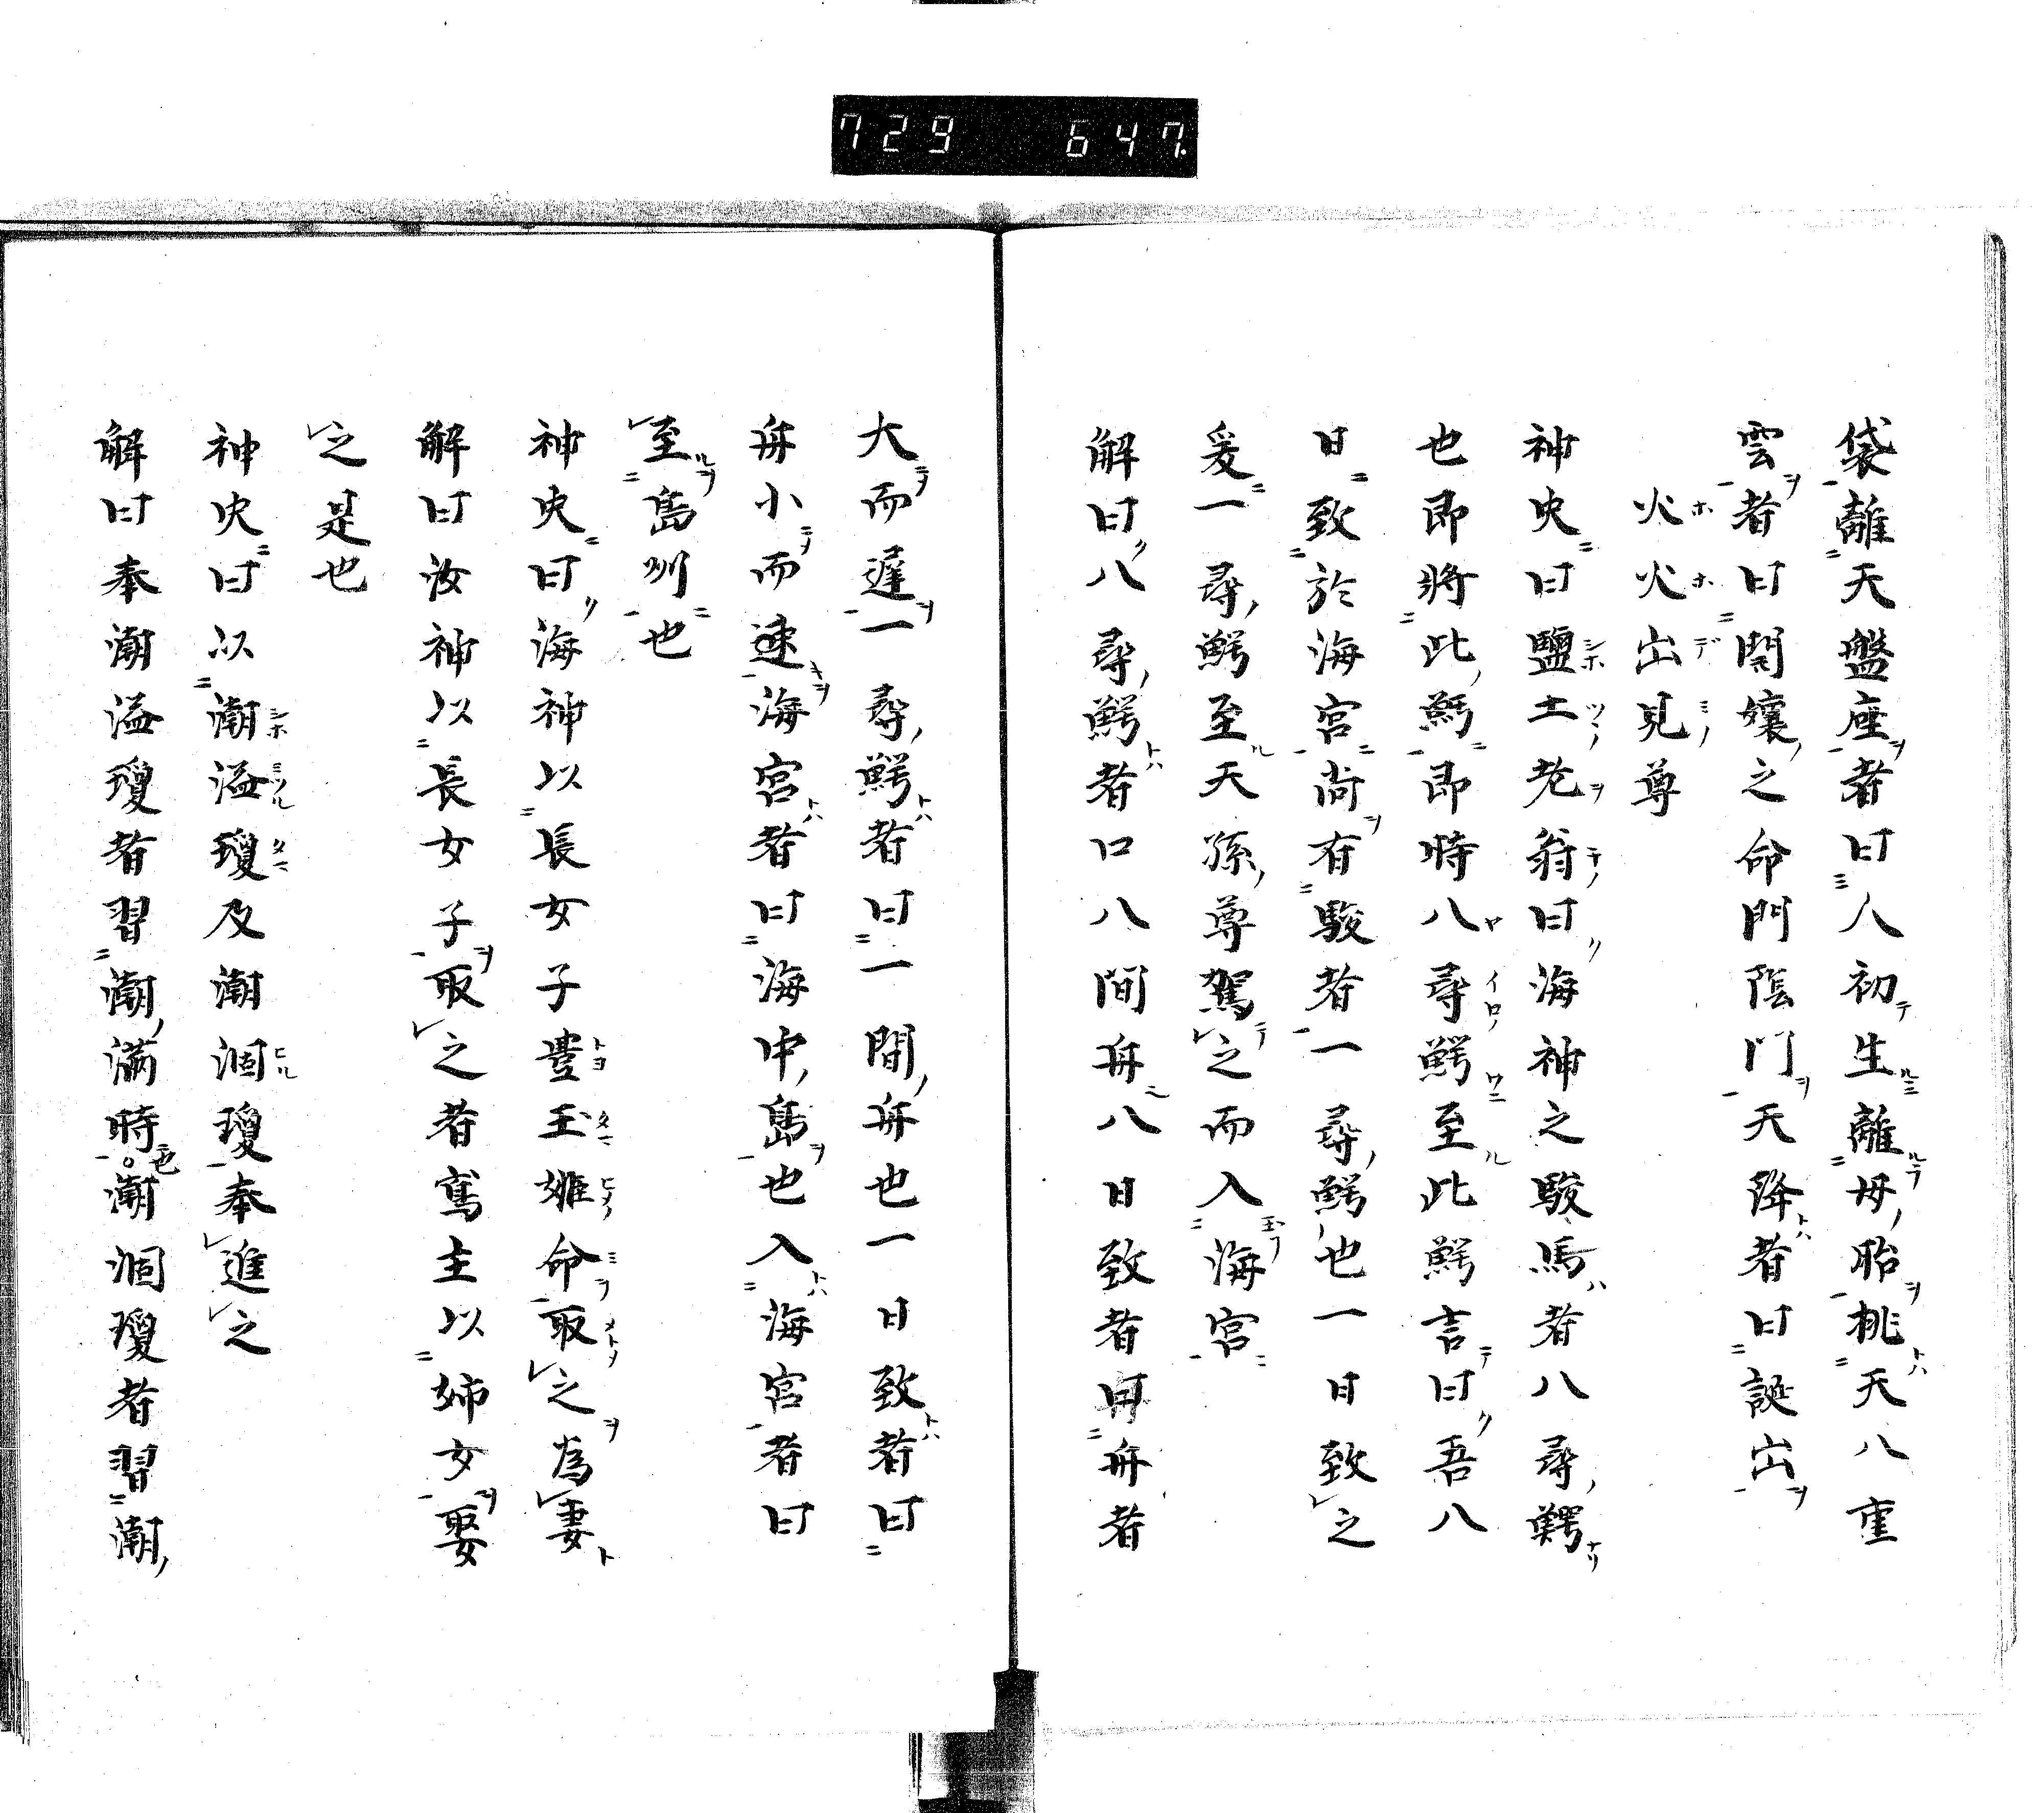 729 647.
袋離天盤座者曰人初生離母胎桃天八重
雲者曰開孃之命門陰門天降者曰誕出
火火出見尊
神史曰鹽土老翁曰海神之駿馬者八尋鰐
也即將此鰐即時八尋鰐至此鰐言曰吾八
日致於海宮尚有駿者一尋鰐也一日致之
爰一尋鰐至天孫尊駕之而入海宮
解曰八尋鰐者口八間舟八日致者舟者
大而遲一尋鰐者曰一間舟也一日致者曰
舟小而速海宮者曰海中島也入海宮者曰
至島州也
神史曰海神以長女子豐玉姬命取之為妻
解曰汝神以長女子取之者寫主以姉女娶
之是也
神史曰以潮溢瓊及潮涸瓊奉進之
解曰奉潮溢瓊者習潮滿時也潮涸瓊者習潮